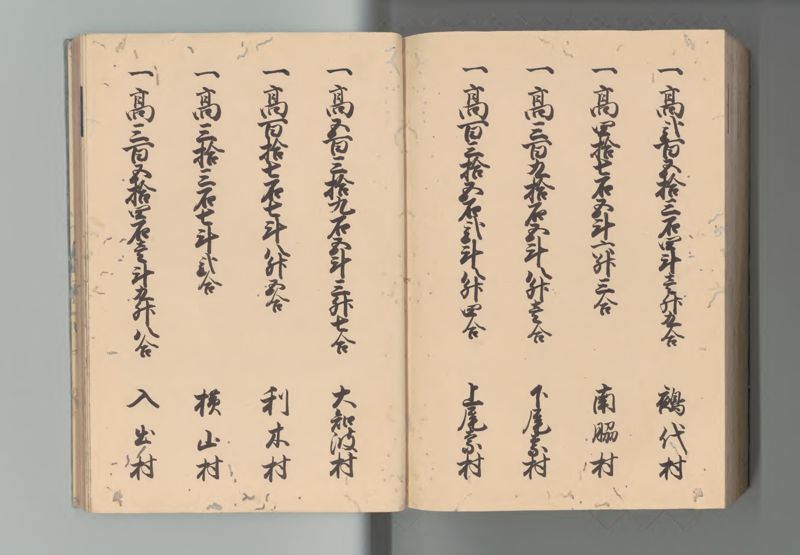 一高弐百五拾三石四斗壱升五合 鵺代村
一高四拾七石五斗六升三合 南脇村
一高三百九拾石五斗八升壱合 下尾奈村
一高百三拾五石弐斗八升四合 上尾奈村
一高五百三拾九石五斗三升七合 大知波村
一高百拾七石七斗八升五合 利木村
一高三拾三石七斗弐合 横山村
一高三百五拾四石壱斗九升八合 入出村